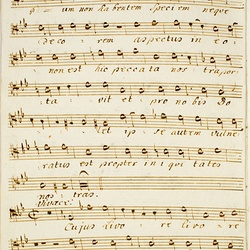 um non habentem speciem neque
deco rem aspectus in e o
non est hic peccata nos trapor
ta vit et pro no bis do
let ip se autem vulne
ratus est propter iniqui tates
nos tras.
vivace.
Cujus livo re Livo re